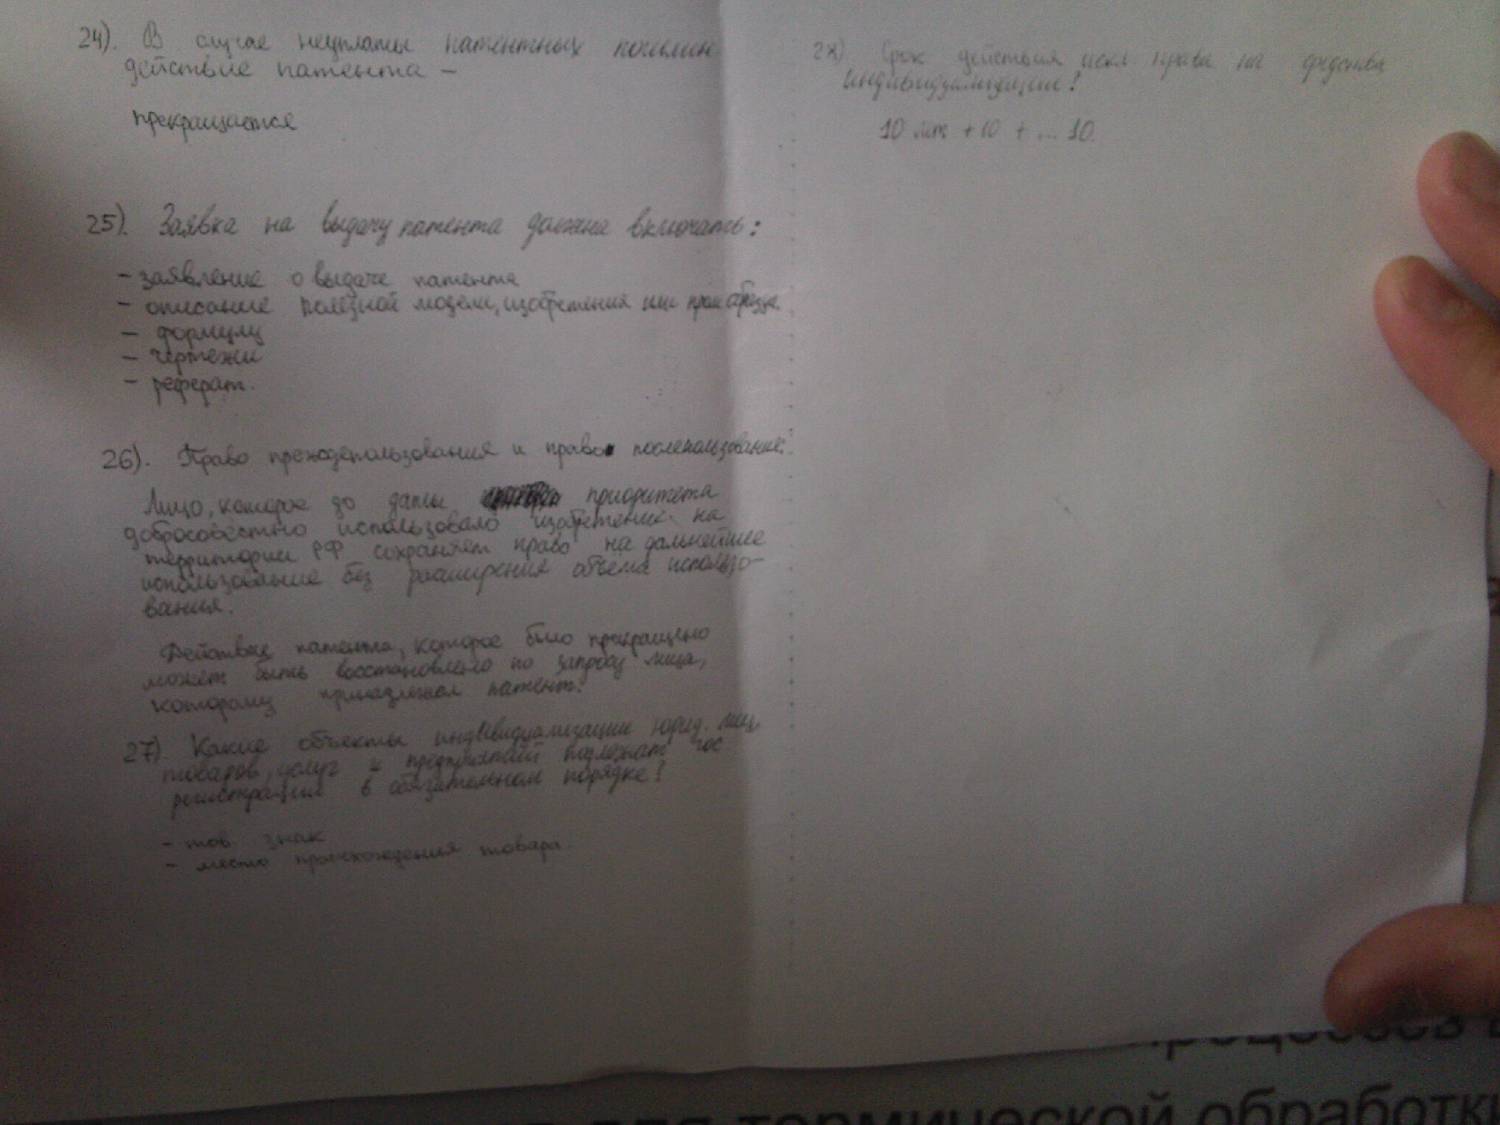 24). В случае неуплаты патентных пошлин
действие патента –
прекращается
25). Заявка на выдачу патента должна включать:
– заявление о выдаче патента
– описание полезной модели, изобретения или пром образца.
– формулу
– чертежи
– реферат.
26). Право преждепользования и право послепользования:
Лицо, которое до даты приоритета
добросовестно использовало изобретение на
территории РФ сохраняет право на дальнейшее
использование без расширения объема использо-
вания.
Действие патента, которое было прекращено
может быть восстановлено по запросу лица,
которому принадлежал патент.
27) Какие объекты индивидуализации юрид. лиц,
товаров, услуг и предприятий подлежат гос
регистрации в обязательном порядке?
– тов. знак
– место происхождения товара.
28) Срок действия искл. права на средства
индивидуализации?
10 лет + 10 + ... 10.
процессов
для термической обработки